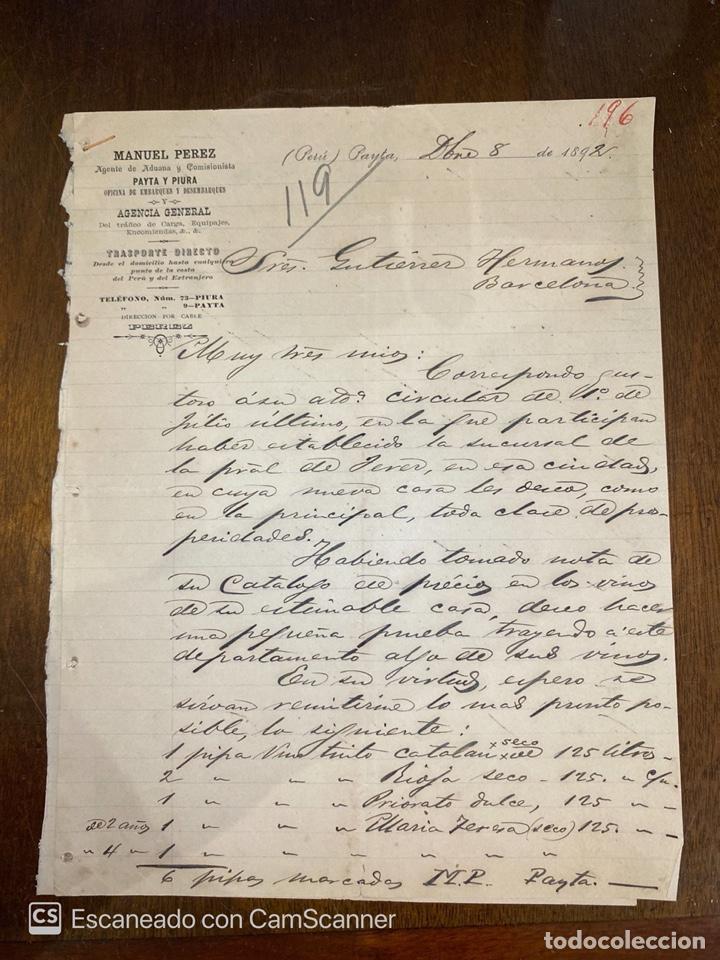 196
MANUEL PEREZ
Agente de Aduana y Comisionista
PAYTA Y PIURA
OFICINA DE EMBARQUES Y DESEMBARQUES
Y
AGENCIA GENERAL
Del tráfico de Carga, Equipajes,
Encomiendas, &., &.
TRASPORTE DIRECTO
Desde el domicilio hasta cualquiera
punto de la costa
del Perú y del Extranjero
TELÉFONO, Núm. 73—PIURA
„ „ 9—PAYTA
DIRECCION POR CABLE
PEREZ
(Perú) Payta, Dbre 8 de 1892
119
Sres. Gutiérrez Hermanos.
Barcelona.
Muy Sres mios:
Correspondo gus-
toso á su atª circular de 1º de
Julio último, en la que participan
haber establecido la sucursal de
la pral de Jerez, en esa ciudad,
en cuya nueva casa les deseo, como
en la principal, toda clase de pros-
peridades.
Habiendo tomado nota de
su Catalogo de précios en los vinos
de su estimable casa, deseo hacer
una pequeña prueba trayendo á este
departamento algo de sus vinos.
En su virtud, espero se
sirvan remitirme lo mas pronto po-
sible, lo siguiente:
1 pipa Vino tinto catalan seco de 125 litros—
2 " " " Rioja seco - 125. " c/u.
1 " " " Priorato dulce, 125 " —
de 2 años 1 " " " Maria Teresa (seco) 125. " —
" 4 " 1 " " " " " "
6 pipas marcadas M.P. Payta.—
CS Escaneado con CamScanner
todocoleccion